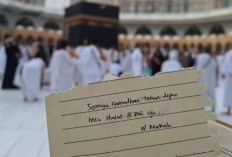 Semoga Ramadhan tahun depan
bisa shalat di sini ya...
Makkah